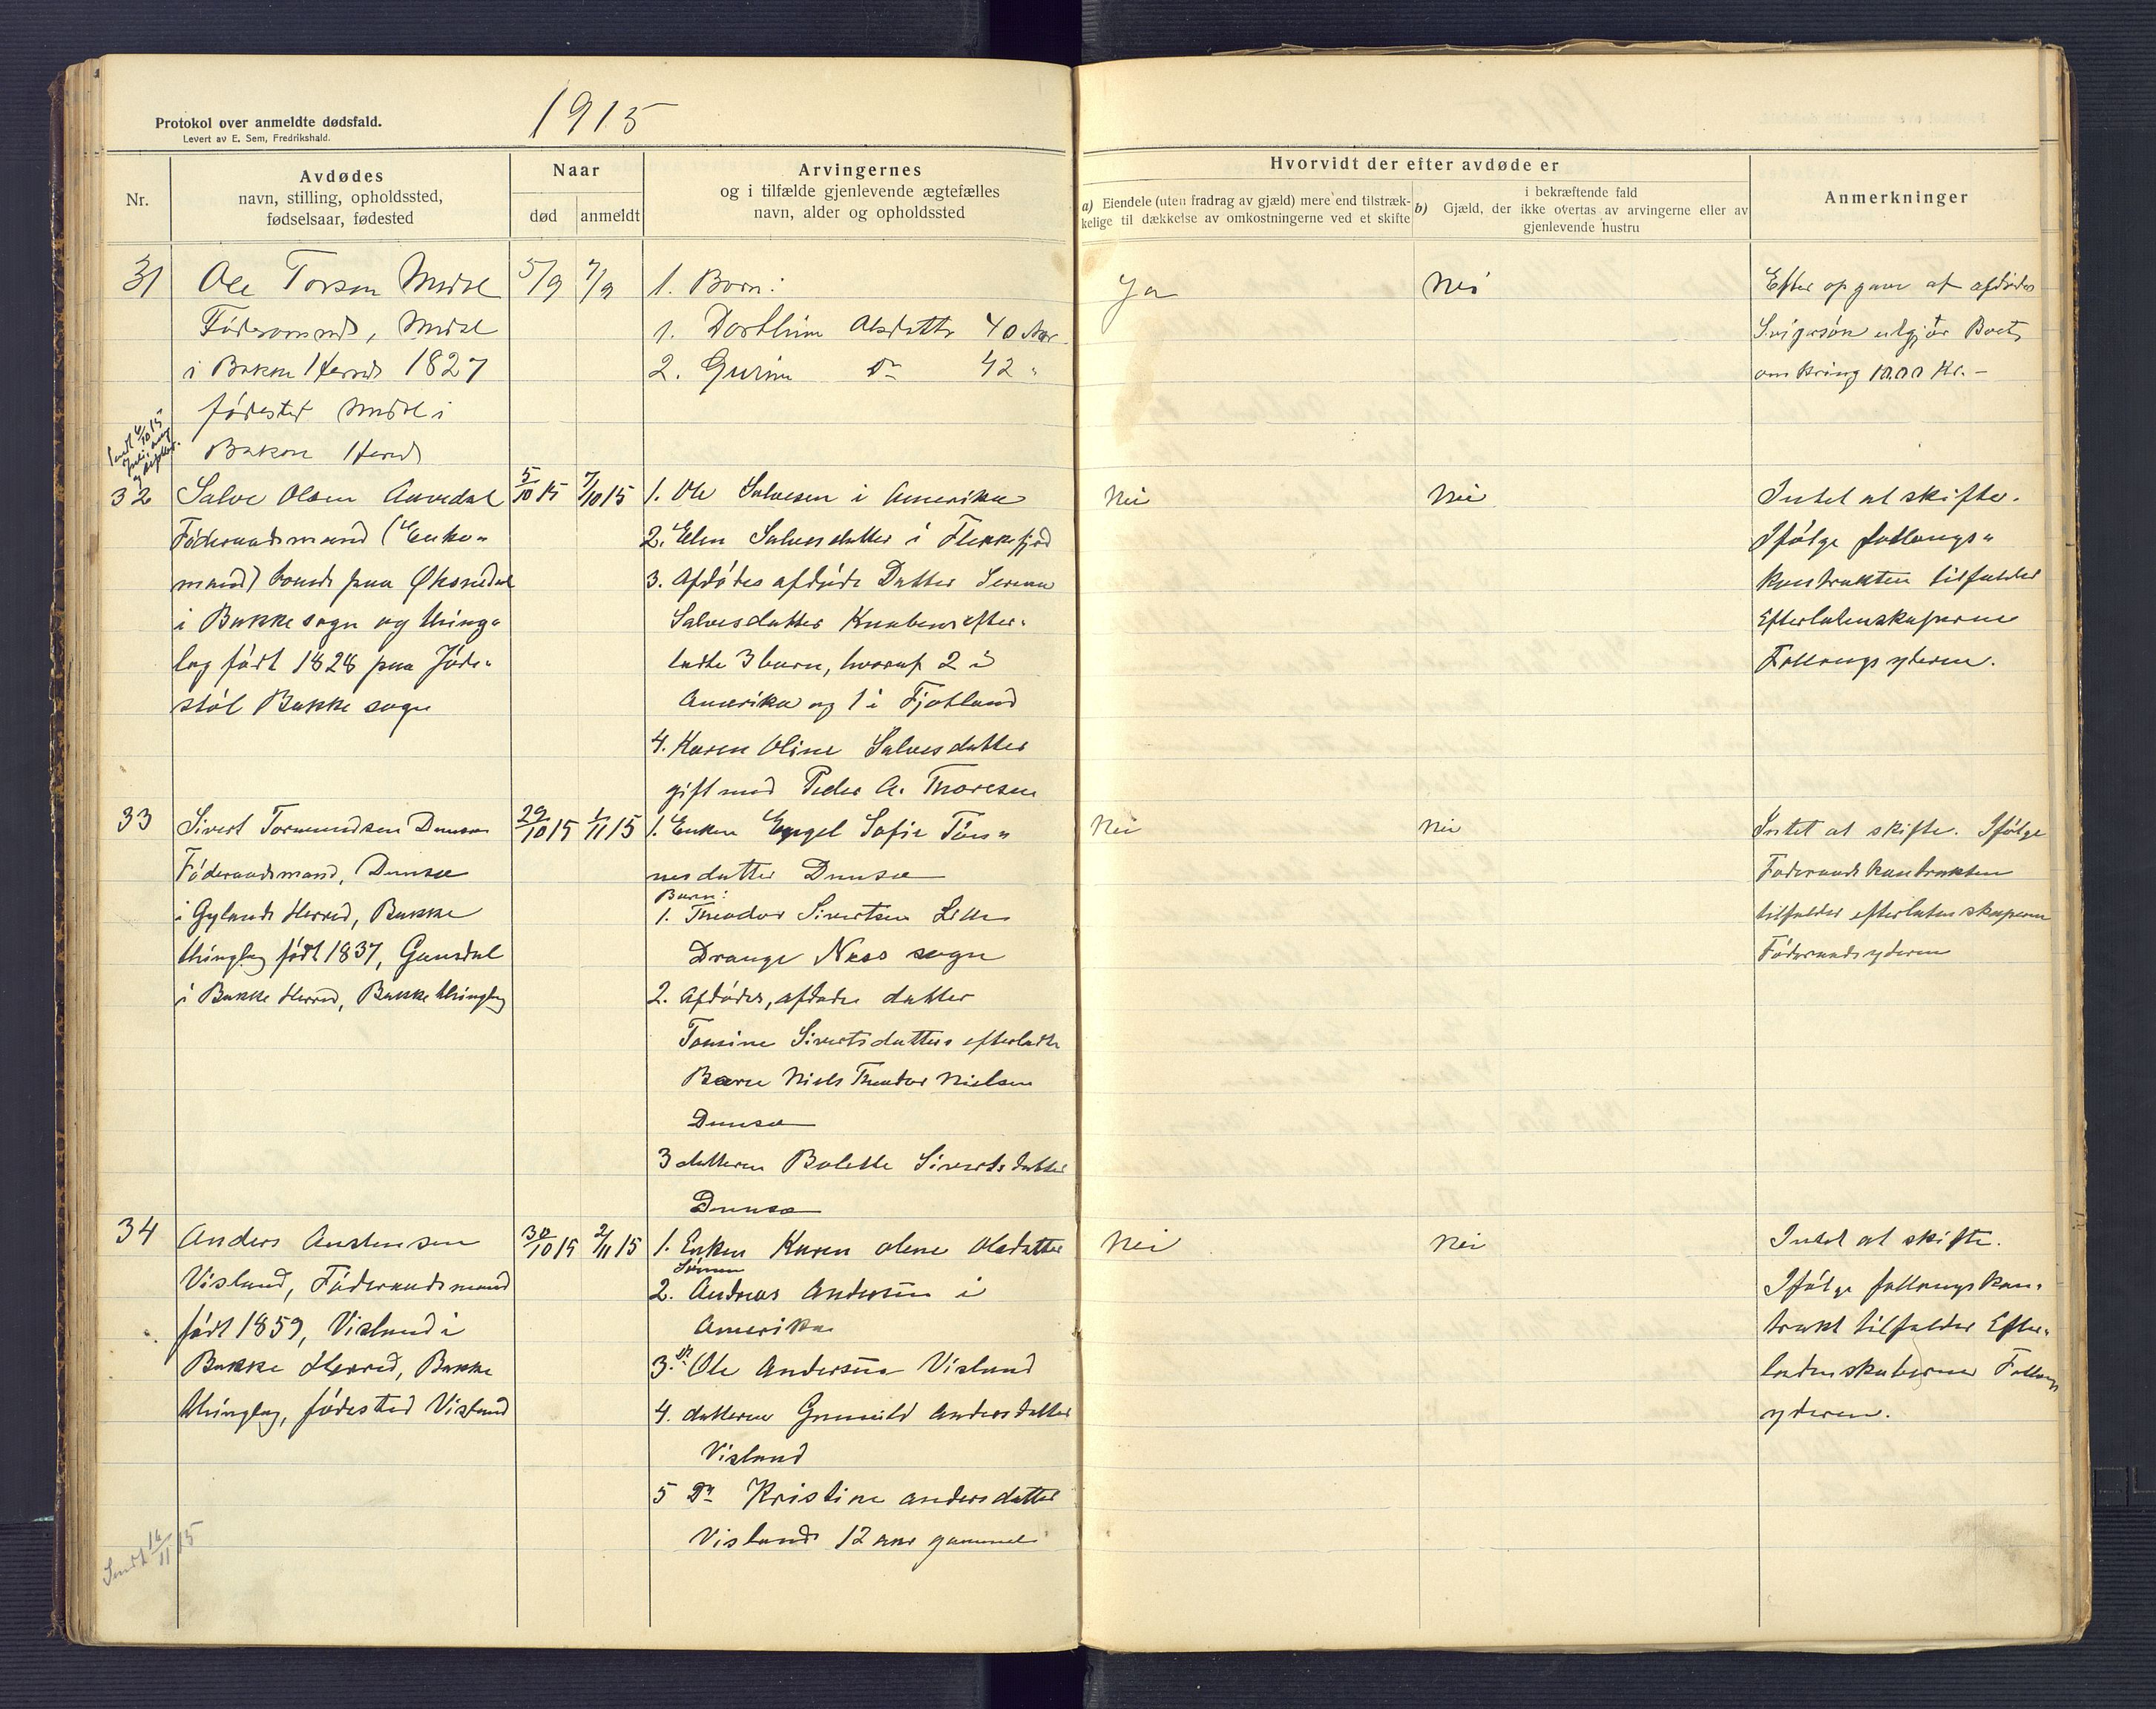 Protokol over anmeldte dødsfald.
Levert av E. Sem, Fredrikshald.
1915
Nr.
Avdødes
navn, stilling, opholdssted,
fødselsaar, fødested
Naar
død
anmeldt
Arvingernes
og i tilfælde gjenlevende ægtefælles
navn, alder og opholdssted
Hvorvidt der efter avdøde er
a) Eiendele (uten fradrag av gjæld) mere end tilstræk-
kelige til dækkelse av omkostningerne ved et skifte
b) i bekræftende fald
Gjæld, der ikke overtas av arvingerne eller av
gjenlevende hustru
Anmerkninger
31
Ole Torsen
Føderaands,
i Bakke Herred 1827
fødested
Bakke Herred
5/9
7/9
1. Børn:
1. Dorthine Olsdatter 40 Aar
2. Gurine Do 42 "
Ja
Nei
Efter opgave af afdødes
Svigersøn udgjør Boet
omkring 1000 Kr. –
Sendt 6/10 15
32
Salve Olsen
Føderaadsmand (Enke-
mand) boende paa Øksendal
i Bakke sogn og thing-
lag født 1828 paa Jøde-
støl Bakke sogn
5/10 15
7/10 15
1. Ole Salvesen i Amerika
2. Elen Salvesdatter i Flekkefjord
3. Afdødes afdøde Datter Serena
Salvesdatter Knabens efter-
ladte 3 barn, hvoraf 2 i
Amerika og 1 i Fjotland
4. Karen Oline Salvesdatter
gift med Peder A. Thoresen
Nei
Nei
Intet at skifte.
Ifølge follougs-
kontrakten tilfalder
Efterladenskaperne
Follougsyderen.
33
Sivert Tormundsen Dunsæ
Føderaadsmand, Dunsæ
i Gylands Herred, Bakke
thinglag født 1837, Gunsdal
i Bakke Herred, Bakke thinglag
29/10 15
1/11 15
1. Enken Engel Sofie Tøn-
nesdatter Dunsæ
Børn:
1. Theodor Sivertsen Lille
Drange Næs sogn
2. Afdødes, afdøde datter
Tomine Sivertsdatters efterladte
Barn Niels Theodor Nielsen
Dunsæ
3 datteren Bolette Sivertsdatter
Dunsæ
Nei
Nei
Intet at skifte. Ifølge
Føderaadskontrakten
tilfalder efterladenskaperne
Føderaadsyderen
34
Anders Austensen
Visland, Føderaadsmand
født 1859, Visland i
Bakke Herred, Bakke
thinglag, fødested Visland
30/10 15
2/11 15
1. Enken Karen olene Olsdatter
Sønnen
2. Andreas Andersen i
Amerika
3. Do Ole Andersen Visland
4. datteren Gunuild Andersdatter
Visland
5 Do Kristine andersdatter
Visland 12 aar gammel
Nei
Nei
Intet at skifte.
Ifølge follougskon-
trakt tilfalder Efter-
ladenskaberne Follougs
yderen.
Sendt 16/11 15